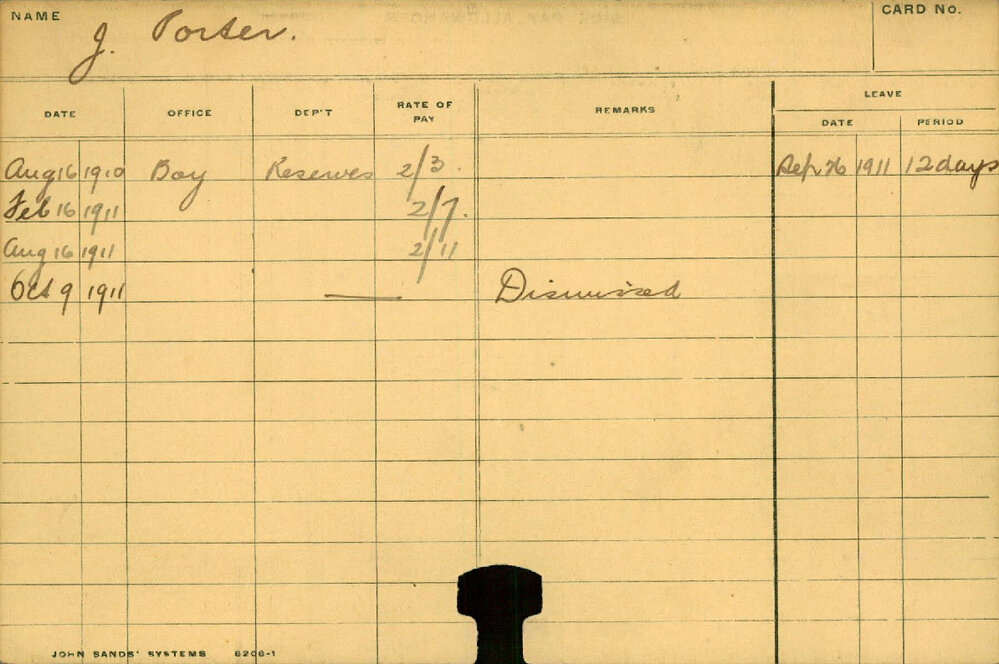 NAME J. Porter. CARD No.
LEAVE
DATE OFFICE DEP'T RATE OF PAY REMARKS DATE PERIOD
Aug 16 1910 Boy Reserves 2/3. Sep 26 1911 12 days
Feb 16 1911 2/7.
Aug 16 1911 2/11
Oct 9 1911 — Dismissed
JOHN SANDS' SYSTEMS 6206-1